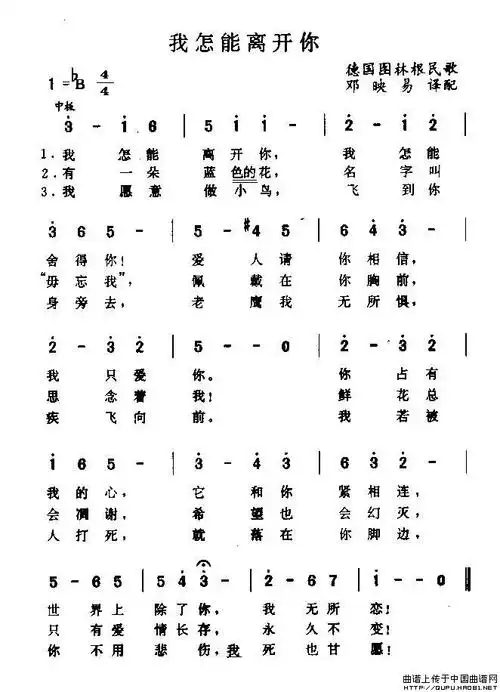 我怎能离开你
德国图林根民歌
1=♭B 4/4
邓映易译配
中板
3 - 1 6 | 5 1 1 - | 2 - 1 2 |
1.我 怎能 离开你, 我 怎能
2.有 一朵 蓝色的花, 名 字叫
3.我 愿意 做小鸟, 飞 到你
3 6 5 - | 5 - #4 5 | 6 4 3 - |
舍得你! 爱 人请 你相信,
“毋忘我”, 佩 戴在 你胸前,
身旁去, 老 鹰我 无所惧,
2 - 3 2 | 5 - - 0 | 2 - 3 2 |
我 只爱 你。 你 占有
思 念着 我! 鲜 花总
疾 飞向 前。 我 若被
1 6 5 - | 3 - 4 3 | 6 3 2 - |
我的心, 它 和你 紧相连,
会凋谢, 希 望也 会幻灭,
人打死, 就 落在 你脚边,
5 - 6 5 | 5 4 3 - | 2 - 6 7 | 1 - - 0 ‖
世 界上 除了你, 我 无所 恋!
只 有爱 情长存, 永 久不 变!
你 不用 悲伤,我 死 也甘 愿!
曲谱上传于中国曲谱网
http://www.QUPU123.com